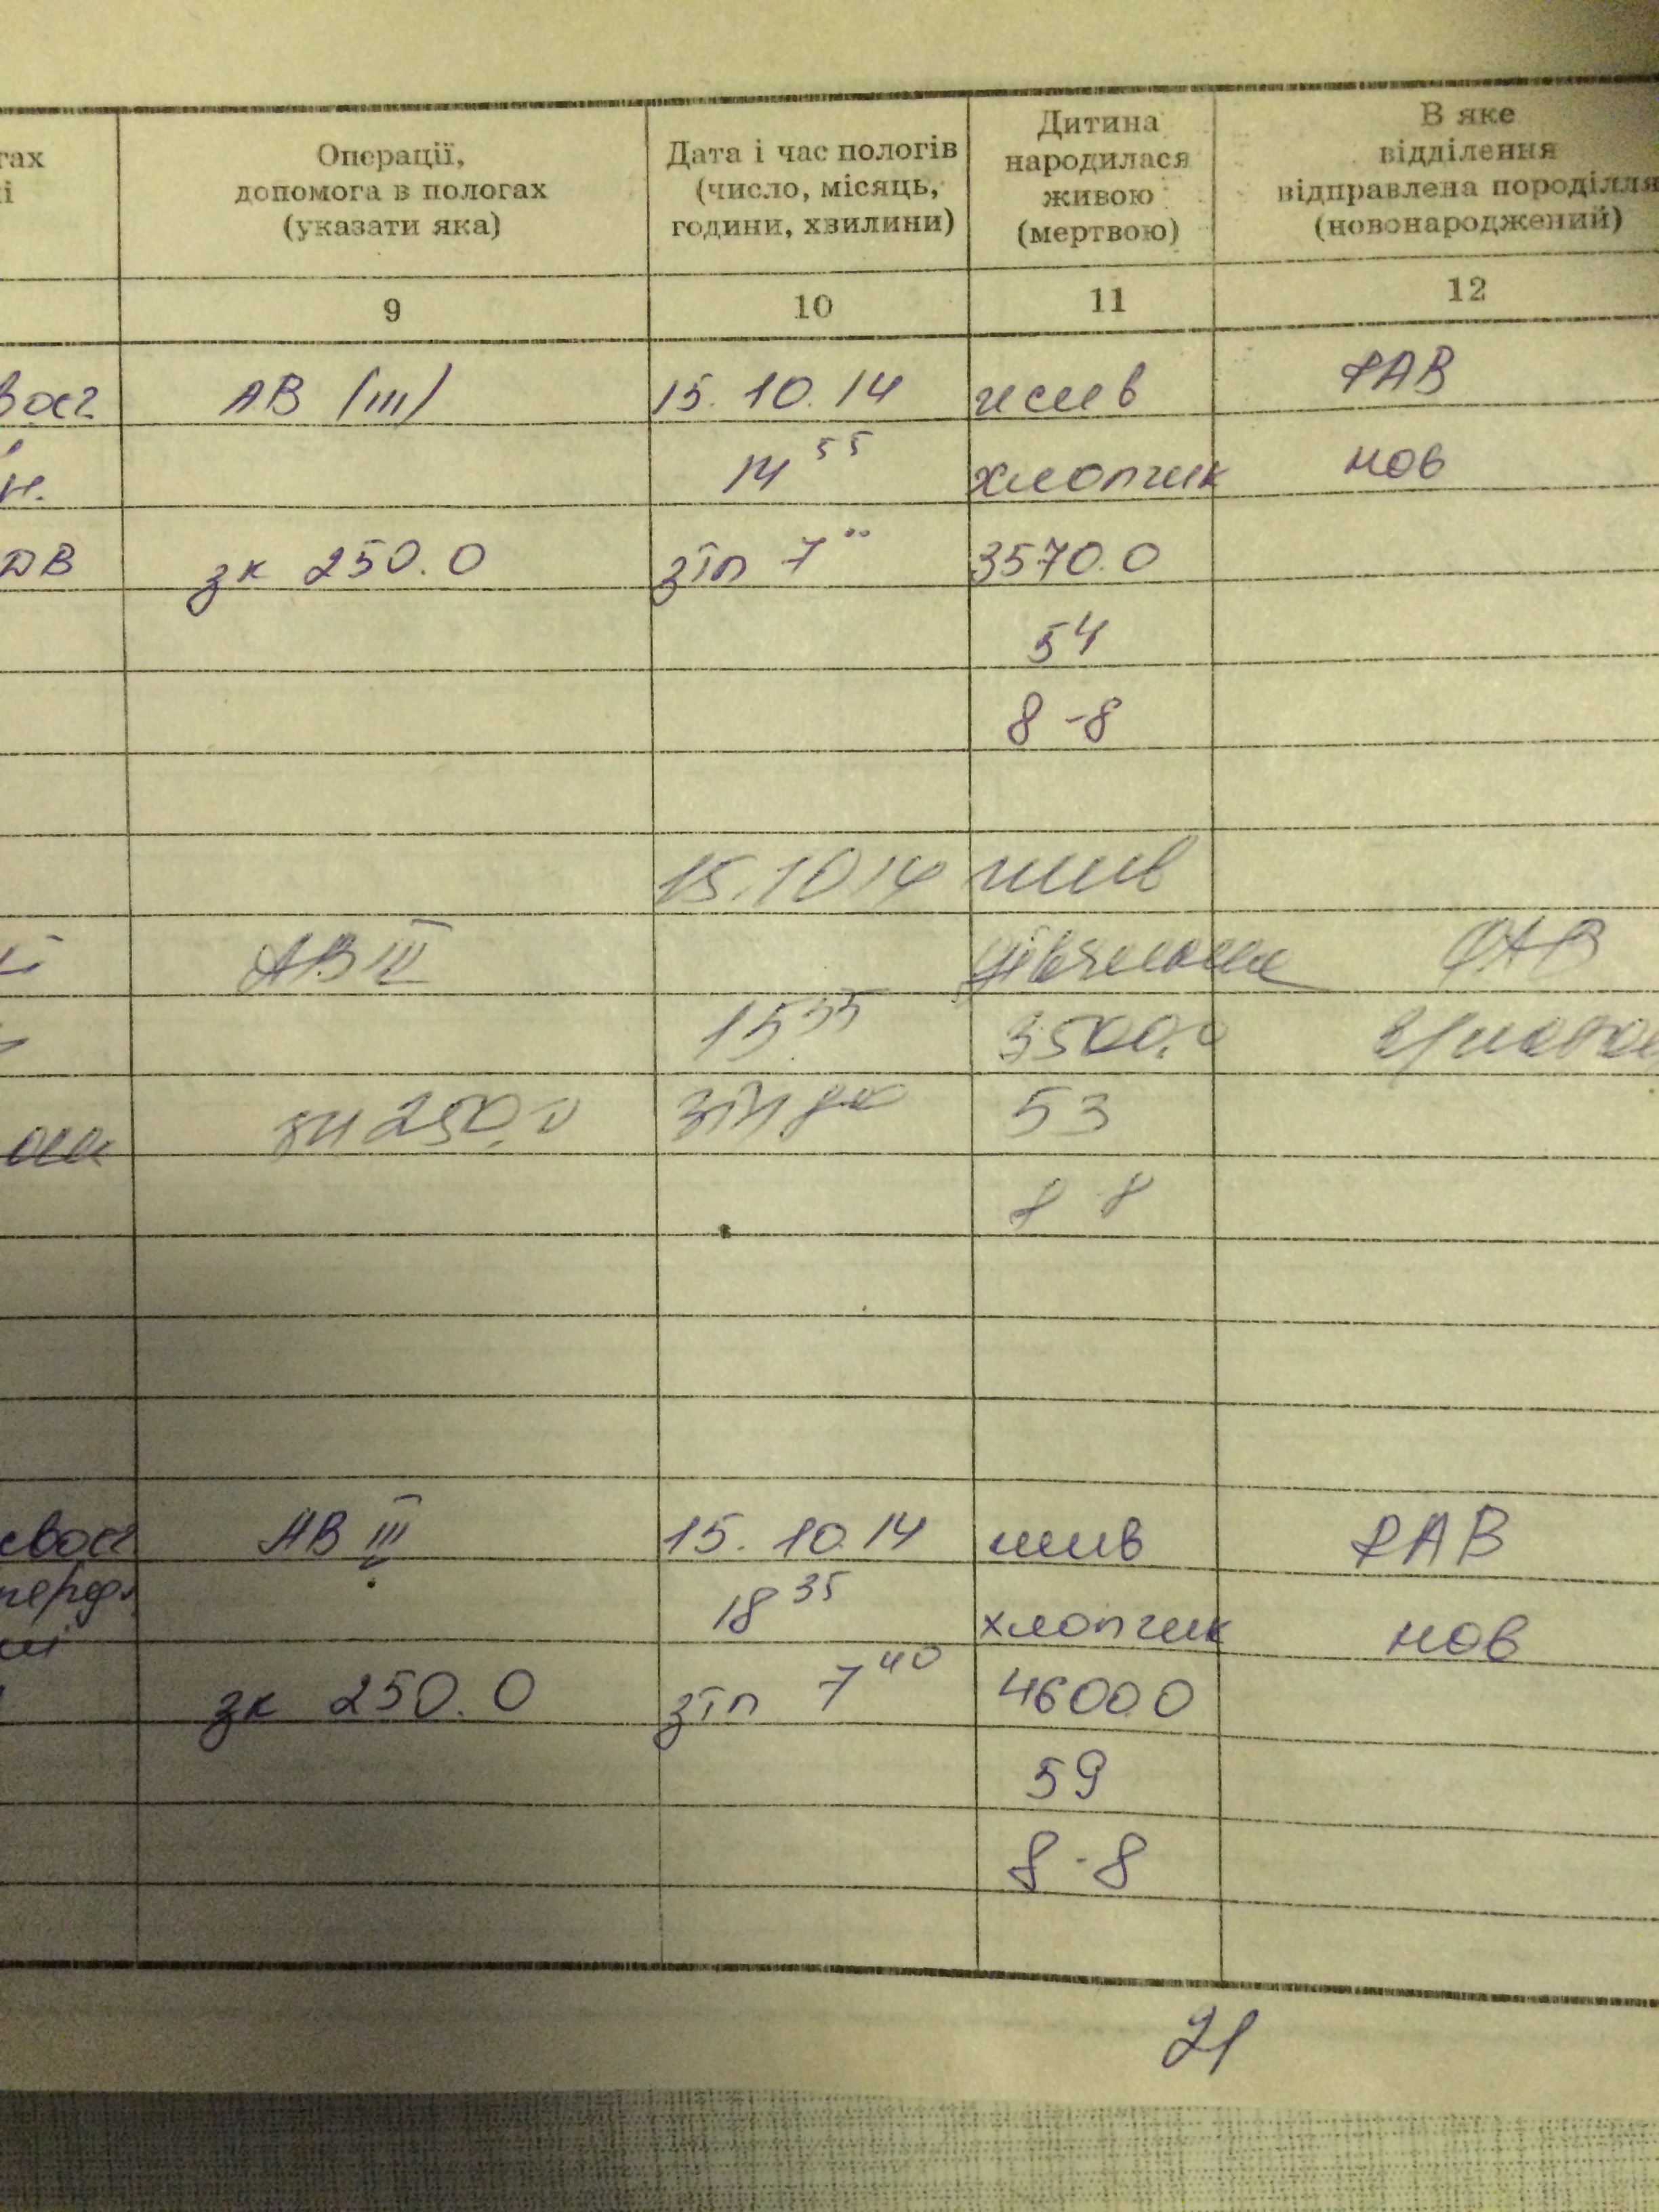 гах
Операції,
допомога в пологах
(указати яка)
Дата і час пологів
(число, місяць,
години, хвилини)
Дитина
народилася
живою
(мертвою)
В яке
відділення
відправлена породілля
(новонароджений)
9
10
11
12
АВ (III) 15.10.14 жив РАВ
н. 14 55 хлопчик нов
ДВ зк 250.0 зіп 7 00 3570.0
54
8-8
15.10.14 жив
АВ III РАВ
15 35 3500,0
250,0 53
8 8
АВ III 15.10.14 жив РАВ
18 35 хлопчик нов
зк 250.0 зіп 7 40 4600.0
59
8-8
21